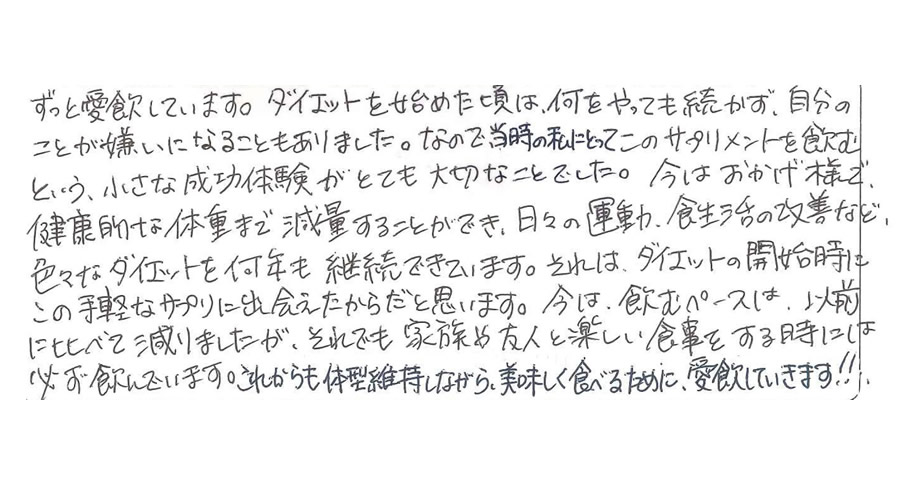 ずっと愛飲しています。ダイエットを始めた頃は、何をやっても続かず、自分の
ことが嫌いになることもありました。なので、当時の私にとってこのサプリメントを飲む
という、小さな成功体験がとても大切なことでした。今はおかげ様で、
健康的な体重まで減量することができ、日々の運動、食生活の改善など、
色々なダイエットを何年も継続できています。それは、ダイエットの開始時に
この手軽なサプリに出会えたからだと思います。今は、飲むペースは、以前
に比べて減りましたが、それでも家族や友人と楽しい食事をする時には
必ず飲んでいます。これからも体型維持しながら、美味しく食べるために、愛飲していきます!!